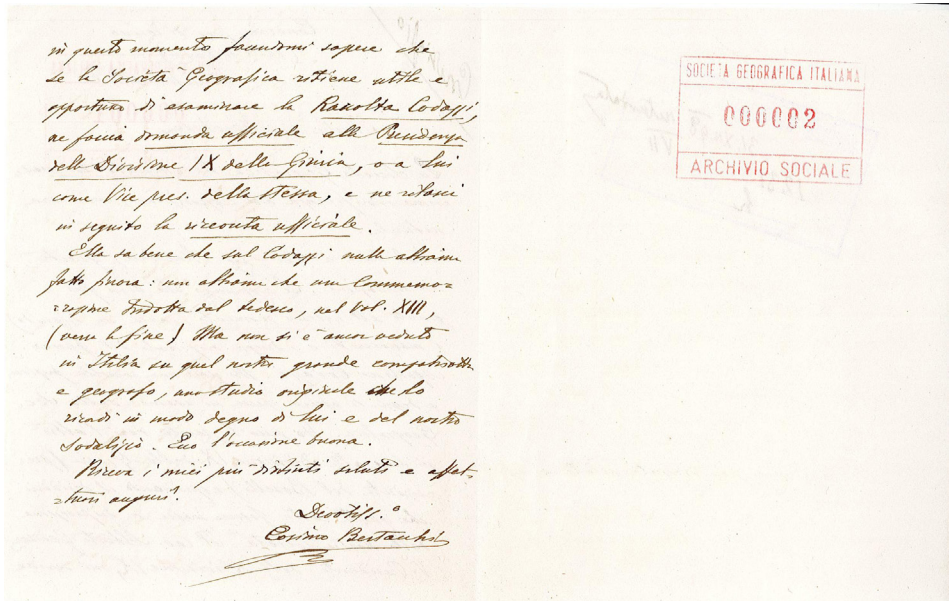 in questo momento facendomi sapere che
se la Società Geografica ritiene utile e
opportuno di esaminare la Raccolta Codazzi,
ne faccia domanda ufficiale alla Presidenza
della Divisione IX della Giuria, o a lui
come Vice pres. della stessa, e ne rilasci
in seguito la ricevuta ufficiale.
Ella sa bene che sul Codazzi nulla abbiamo
fatto finora: non abbiamo che una Commemo-
razione tradotta dal tedesco, nel Vol. XIII,
(verso la fine) Ma non si è ancor veduto
in Italia su quel nostro grande compatriotta
e geografo, uno studio originale che lo
ricordi in modo degno di lui e del nostro
Sodalizio. Ecco l'occasione buona.
Riceva i miei più distinti saluti e affet-
tuosi auguri.
Devotiss.º
Cosimo Bertacchi
SOCIETÀ GEOGRAFICA ITALIANA
000002
ARCHIVIO SOCIALE